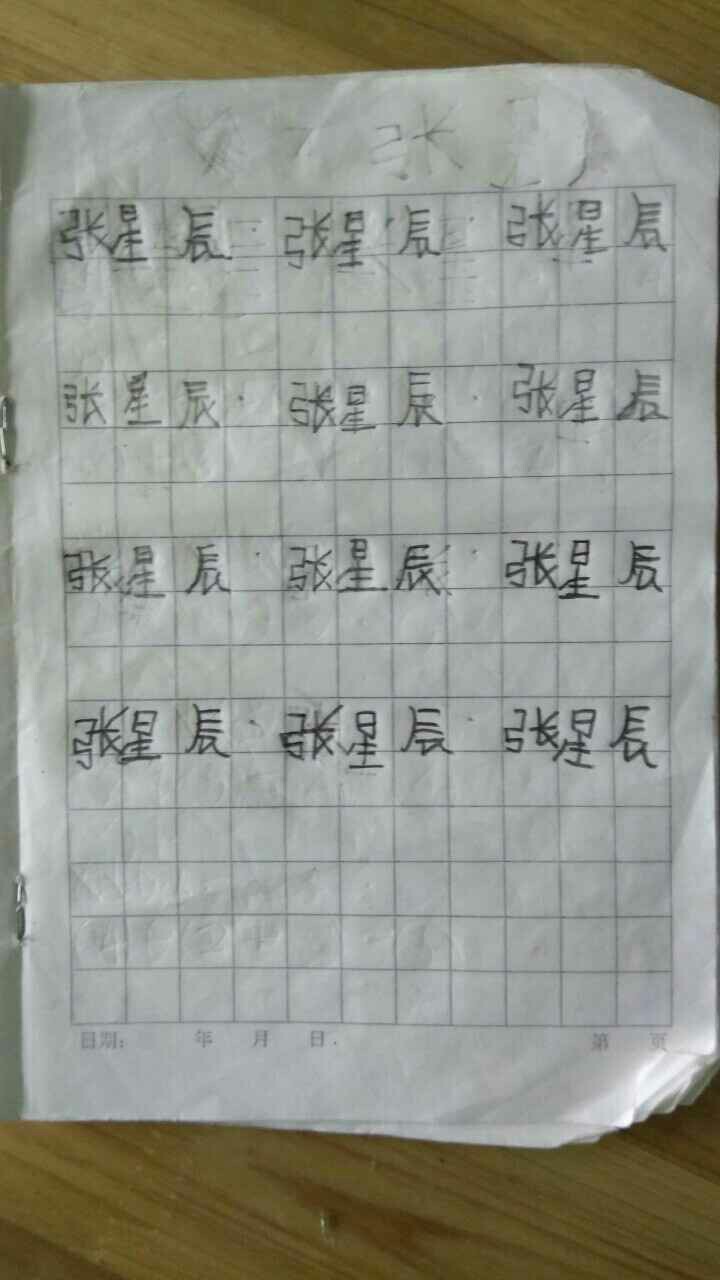 张
张星辰·张星辰·张星辰
张星辰·张星辰·张星辰
张星辰·张星辰·张星辰
张星辰·张星辰·张星辰
日期: 年 月 日. 第 页